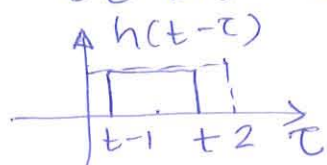 h(t-τ)
t-1 t 2 τ